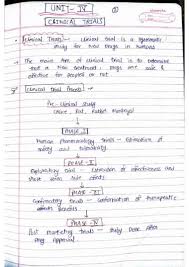 UNIT - IV
CLINICAL TRIALS
Clinical Trials - clinical trial is a systematic
study for new drugs in humans
The main aim of clinical trial is to determine
that a new treatment, drugs are safe &
effective for peoples or not
Clinical Trial Phases -
Pre-Clinical study
(Mice, Rat, Rabbit, Monkeys)
PHASE - I
Human Pharmacology Trials - Estimation of
safety and tolerability
PHASE - II
Exploratory trial - Estimation of effectiveness and
short term side effects
PHASE - III
Confirmatory trials - Confirmation of therapeutic
effects Benefits
PHASE - IV
Post Marketing trials - Study Done after
Drug Approval